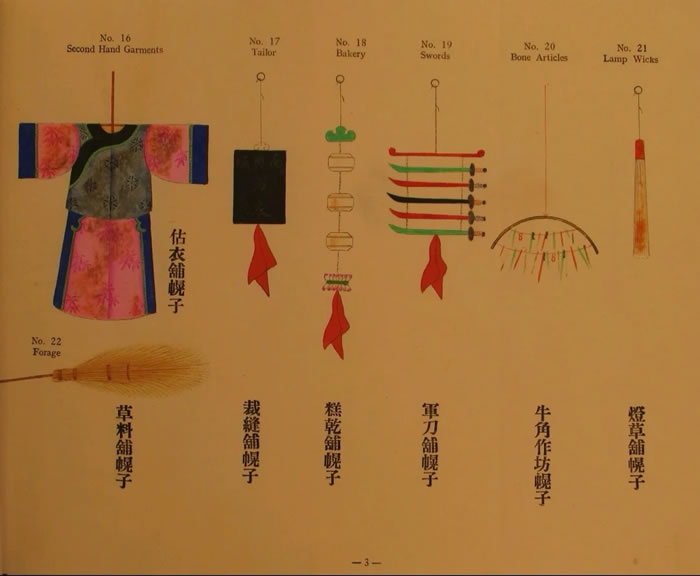 No. 16
Second Hand Garments
No. 17
Tailor
No. 18
Bakery
No. 19
Swords
No. 20
Bone Articles
No. 21
Lamp Wicks
估衣舖幌子
No. 22
Forage
草料舖幌子
裁縫舖幌子
糕乾舖幌子
軍刀舖幌子
牛角作坊幌子
燈草舖幌子
— 3 —